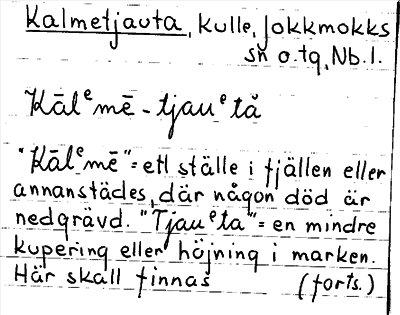 Kalmetjauta, kulle, Jokkmokks
sn o. tg, Nb. l.
Kāl e mē - tjau e tå
"Kāl e mē" = ett ställe i fjällen eller
annanstädes, där någon död är
nedgrävd. "Tjau e ta" = en mindre
kupering eller höjning i marken.
Här skall finnas (forts.)